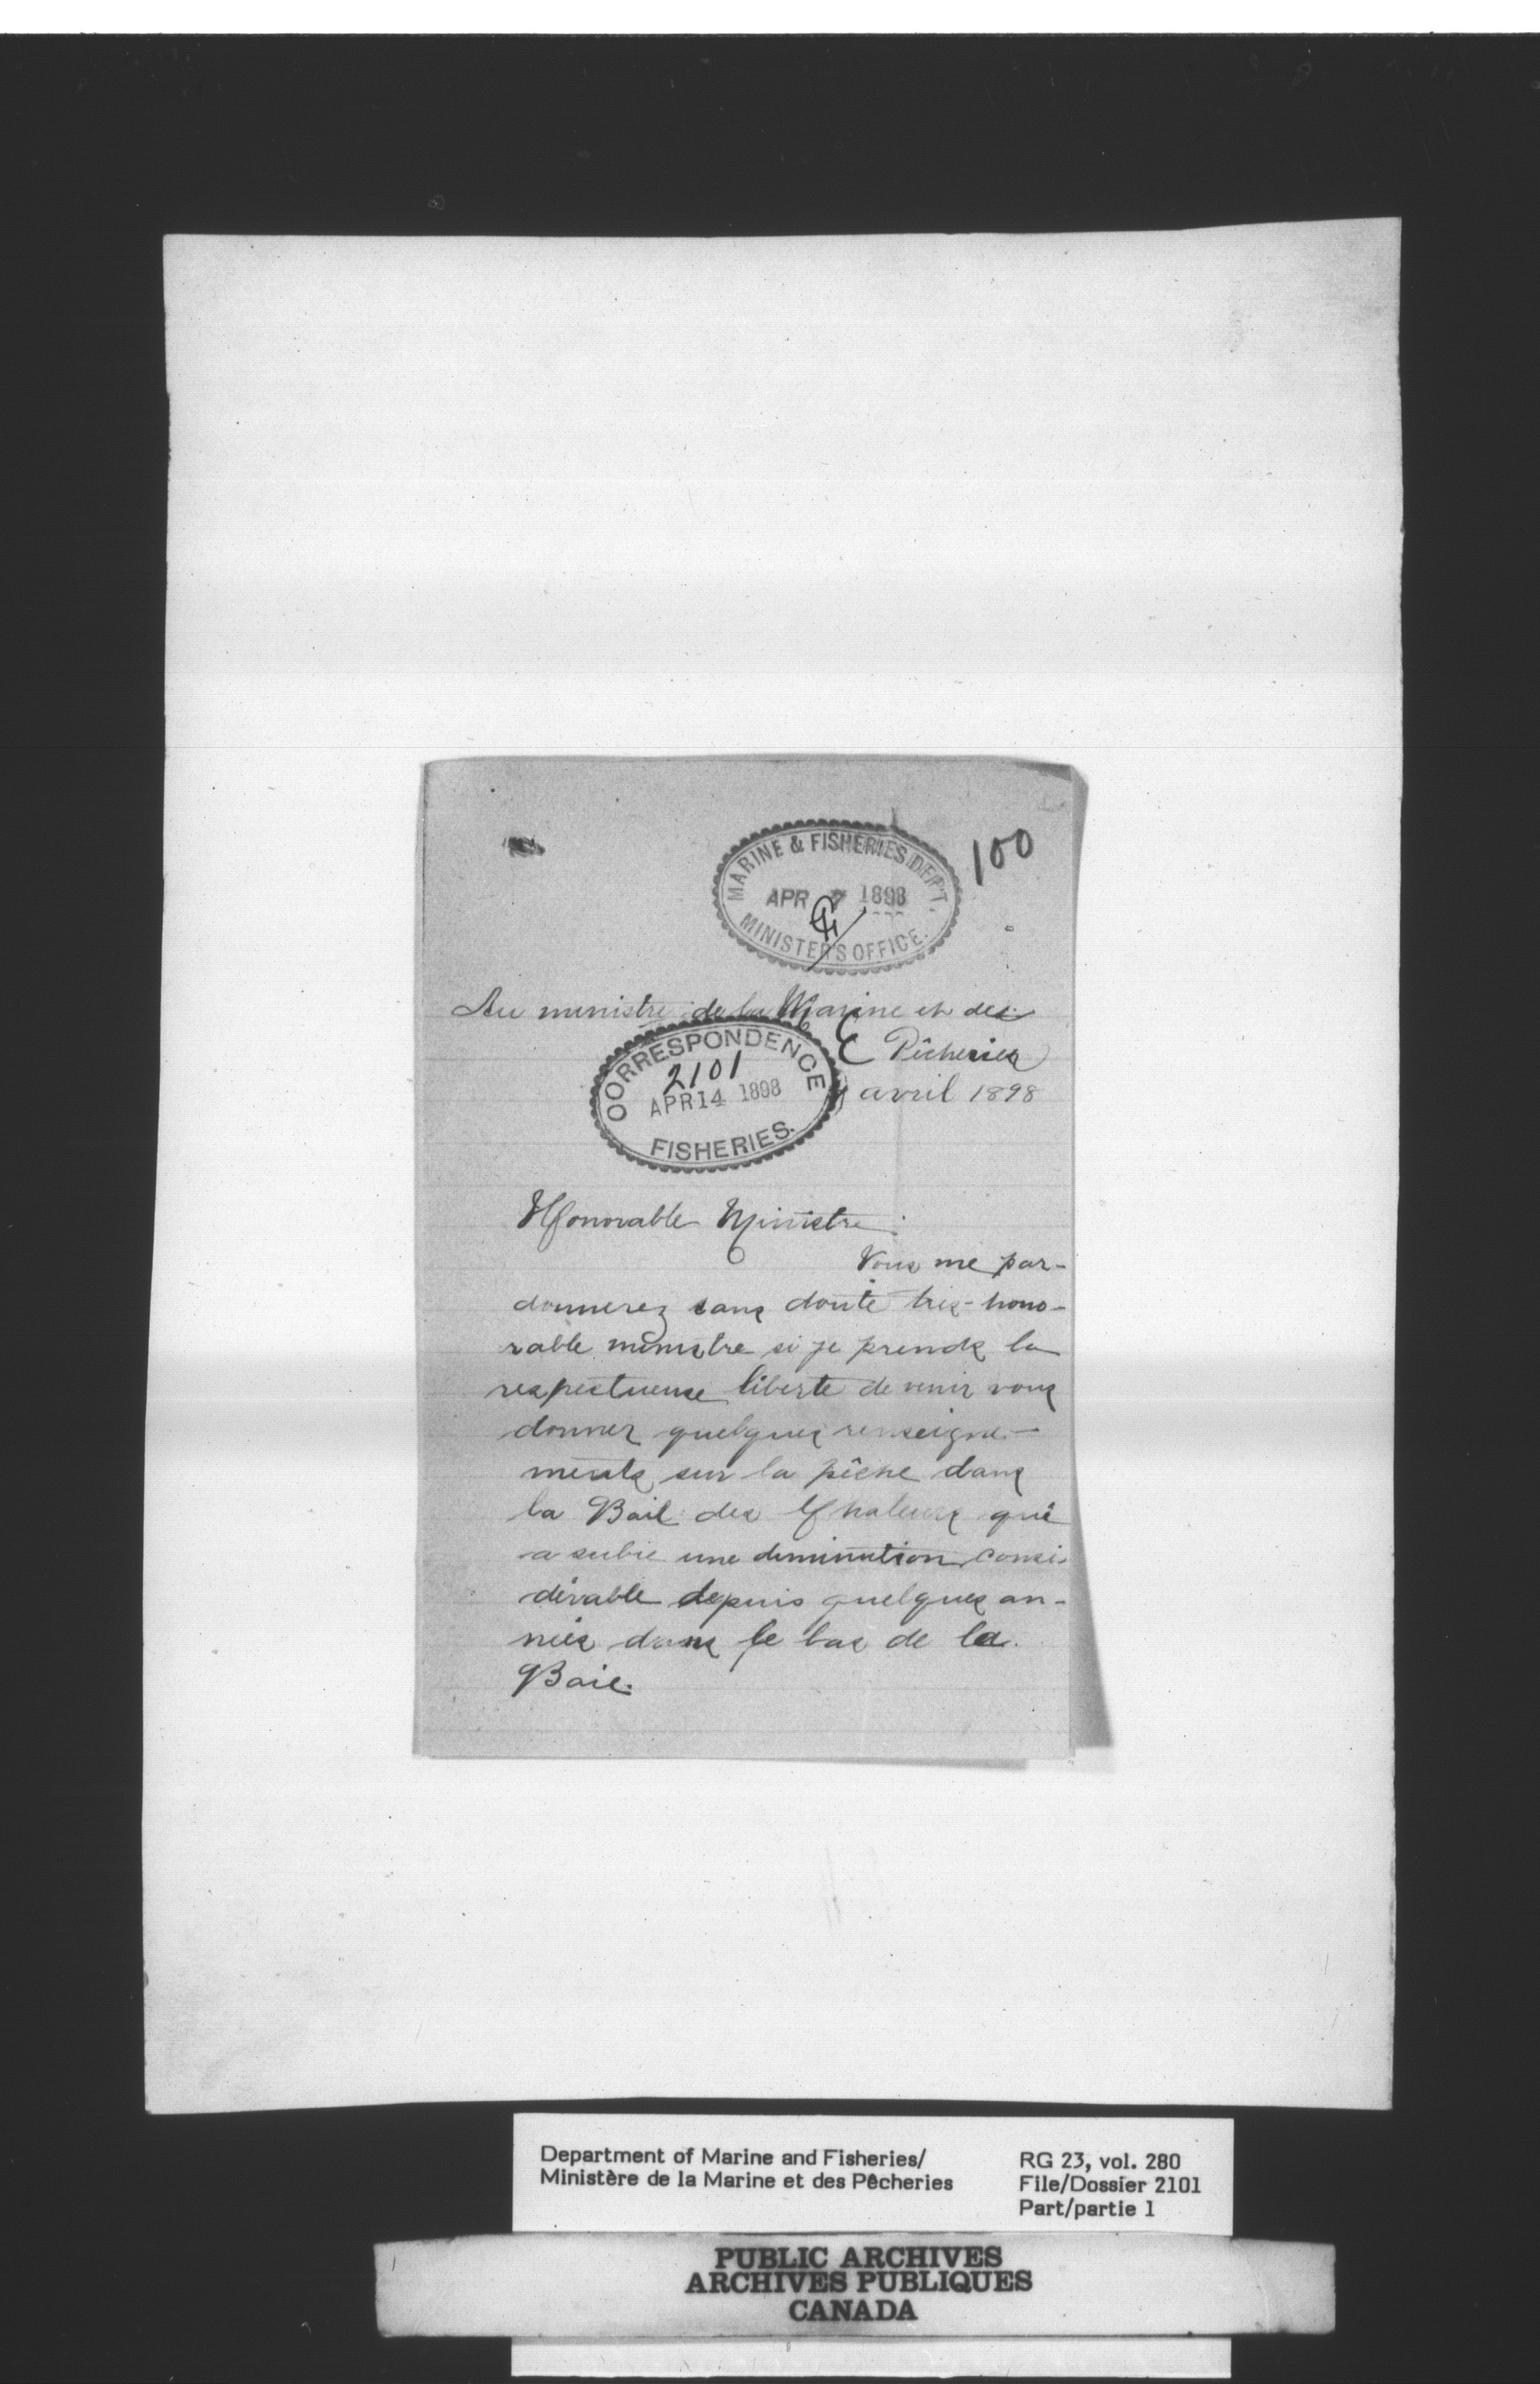 MARINE & FISHERIES DEPT.
100
APR 7 1898
MINISTER'S OFFICE.
Au ministre de la Marine et des
Pêcheries
CORRESPONDENCE
2101
APR 14 1898
FISHERIES.
avril 1898
Honorable Ministre :
Vous me par-
donnerez sans doute très-hono-
rable ministre si je prends la
respectueuse liberté de venir vous
donner quelques renseigne-
ments sur la pêche dans
la Baie des Chaleurs qui
a subie une diminution consi-
dérable depuis quelques an-
nées dans le bas de la
Baie.
Department of Marine and Fisheries/
Ministère de la Marine et des Pêcheries
RG 23, vol. 280
File/Dossier 2101
Part/partie 1
PUBLIC ARCHIVES
ARCHIVES PUBLIQUES
CANADA